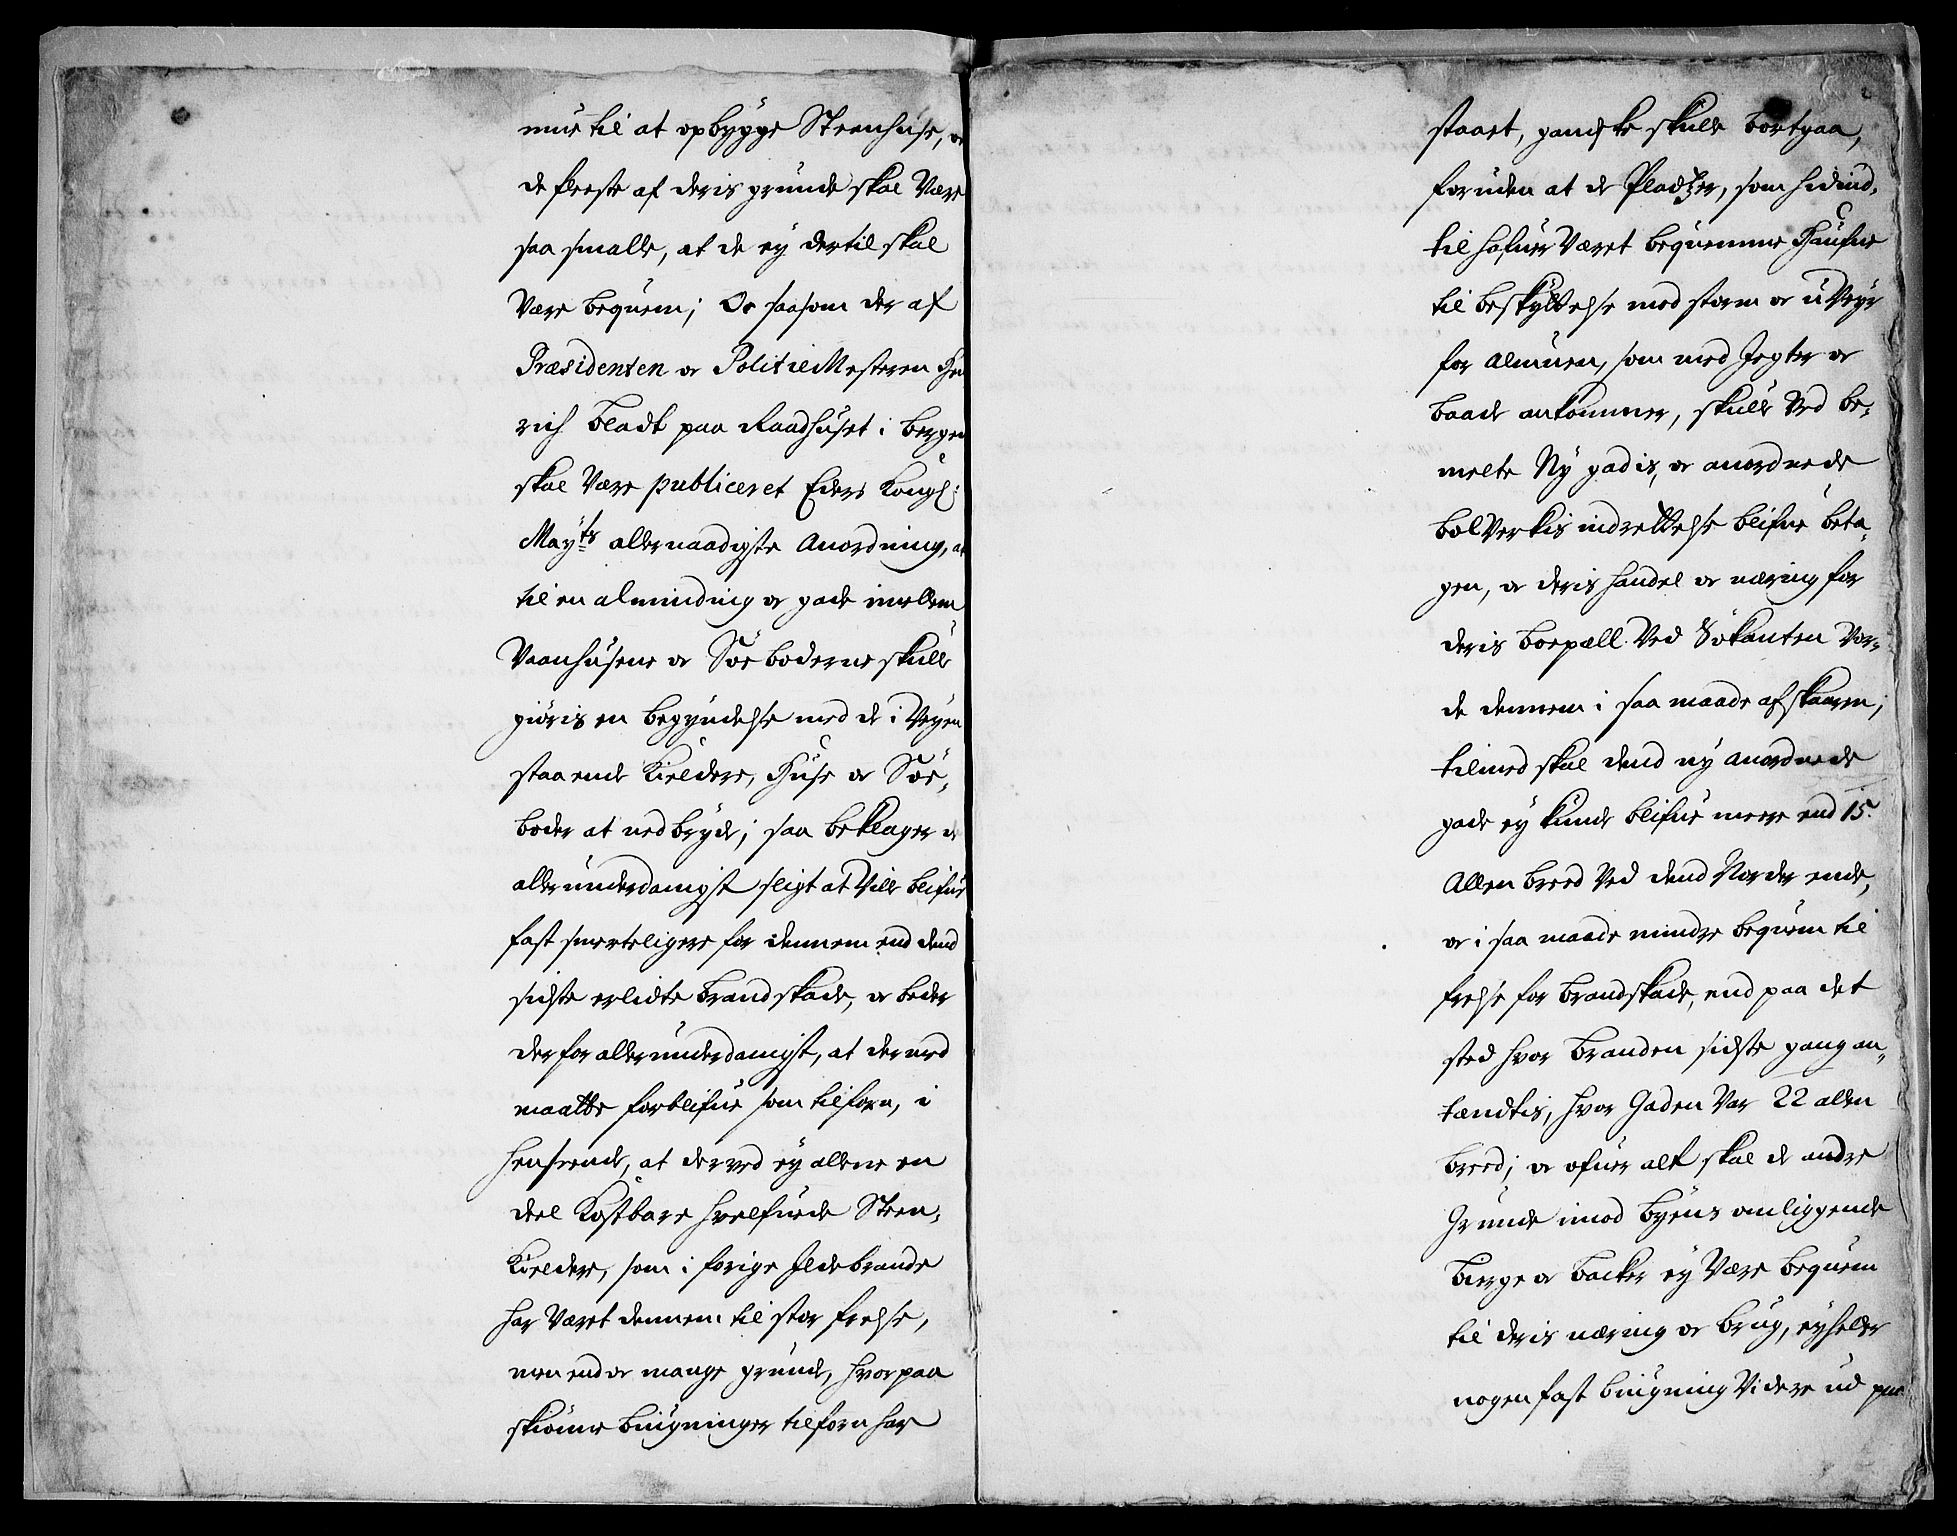 mue til at opbygge Steenhuse, oc
de fleeste af deris grunde skal Være
saa smalle, at de ey dertil skal
Være bequem; Oc saasom der af
Præsidenten oc PolitieMesteren Hen
rich Bladt paa Raadhuset i Bergen
skal Være publiceret Eders Kongl:
Mayts allernaadigste Anordning, at
til en alminding oc gade imellem
Vaanhusene oc Söeboderne skulle
giöris en begyndelse med de i Veyen
staaende Kieldere, Huse oc Söe,
boder at nedbryde; saa beklager de
allerunderdanigst sligt at Ville blifue
fast smerteligere for dennem end dend
sidste erlidte Brandskade, oc beder
derfor allerunderdanigst, at derved
maatte forblifue som tilforn, i
henseende, at derved ey allene en
deel Kostbare hvelfuede Steen,
Kieldere, som i forige Ildebrande
har Været dennem til stor frelse,
men end oc mange grunde, hvorpaa
skiönne bÿgninger tilforn har
staaet, gandske skulle bortgaa,
foruden at de Pladtzer, som hidind,
til hafuer Været bequemme Haufne
til beskyttelse mod storm oc uVeyr
for Almuen, som med Jegter oc
baade ankommer, skulle Ved be,
melte Ny gadis, oc anordnede
bolVerkis indrettelse blifue beta,
gen, oc deris handel oc næring for
deris boepæll Ved Sökanten Vor,
de dennem i saa maade afskaaren;
tilmed skal dend ny anordnede
gade ey kunde blifue meere end 15.
Allen breed Ved dend Norder ende,
oc i saa maade mindre bequem til
frelse for Brandskade, end paa det
sted hvor Branden sidste gang an,
tændtis, hvor Gaden Var 22 allen
breed; oc ofuer alt skal de andre
Grunde imod Byens omliggende
Bierge oc Backer ey Være bequem
til deris næring oc brug, eyheller
nogen fast bÿgning Videre ud paa